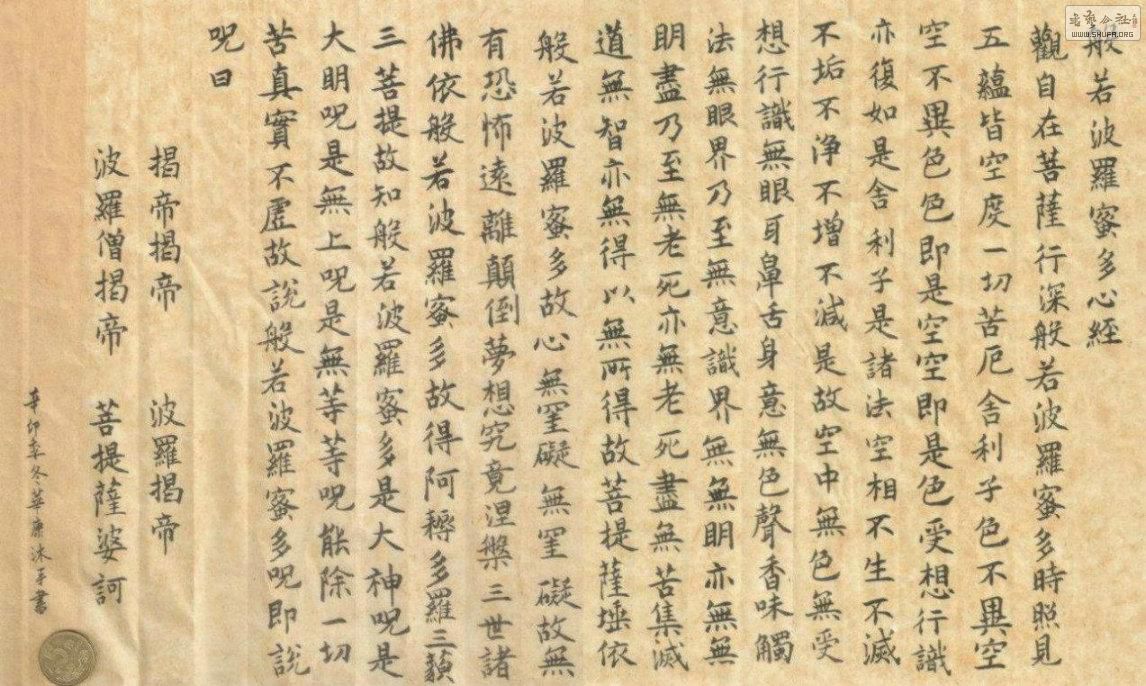 般若波羅蜜多心經
觀自在菩薩行深般若波羅蜜多時照見
五蘊皆空度一切苦厄舍利子色不異空
空不異色色即是空空即是色受想行識
亦復如是舍利子是諸法空相不生不滅
不垢不净不增不減是故空中無色無受
想行識無眼耳鼻舌身意無色聲香味觸
法無眼界乃至無意識界無無明亦無無
明盡乃至無老死亦無老死盡無苦集滅
道無智亦無得以無所得故菩提薩埵依
般若波羅蜜多故心無罣礙無罣礙故無
有恐怖遠離顛倒夢想究竟涅槃三世諸
佛依般若波羅蜜多故得阿耨多羅三藐
三菩提故知般若波羅蜜多是大神呪是
大明呪是無上呪是無等等呪能除一切
苦真實不虛故説般若波羅蜜多呪即説
呪曰
揭帝揭帝 波羅揭帝
波羅僧揭帝 菩提薩婆訶
辛卯季冬華康沐手書
WWW.SHUFA.ORG